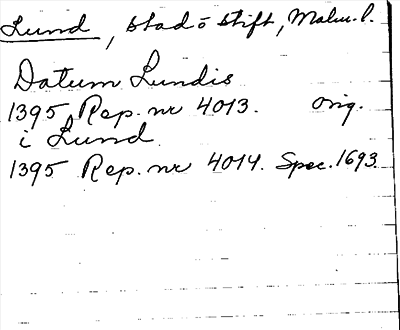 Lund, stad o stift, Malm. l.
Datum Lundis
1395 Rep. nr 4013. orig.
i Lund
1395 Rep. nr 4014. Spec. 1693.